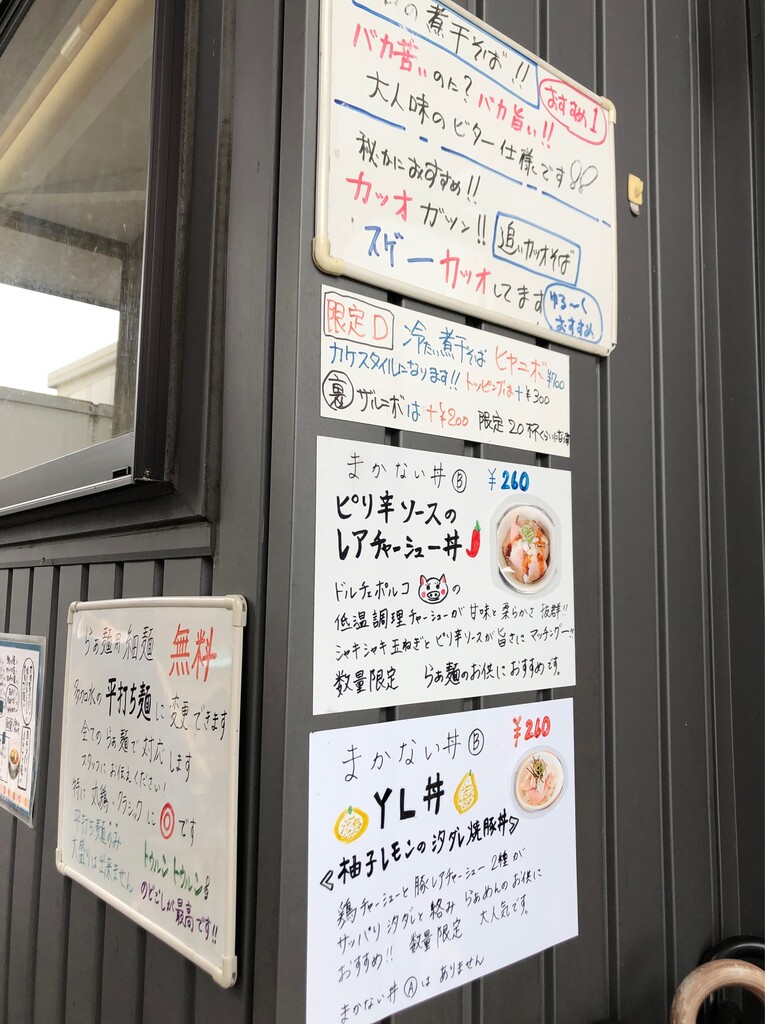 の煮干そば!!
バカ苦いのに?バカ旨い!!
おすすめ1
大人味のビター仕様です
秘かにおすすめ!!
カツオ ガツン!! 追いカツオそば
スゲー カツオしてます
ゆる〜く
おすすめ
限定D 冷たい煮干そば ヒヤニボ ¥700
カケスタイルになります!! トッピングは+¥300
裏 ザルニボは+¥200 限定20杯くらいかなぁ
まかない丼Ⓑ ¥260
ピリ辛ソースの
レアチャーシュー丼
ドルチェポルコの
低温調理チャーシューが甘味と柔らかさ抜群!!
シャキシャキ玉ねぎとピリ辛ソースが旨さにマッチングー!!
数量限定 らぁ麺のお供におすすめです。
まかない丼Ⓑ ¥260
YL丼
≪柚子レモンの汐ダレ焼豚丼≫
鶏チャーシューと豚レアチャーシュー2種が
サッパリ汐ダレと絡み らぁめんのお供に
おすすめ!! 数量限定 大人気です。
まかない丼Ⓐはありません
らぁ麺用細麺 無料
多加水の平打ち麺に変更できます
全てのらぁ麺で対応します
スタッフにお伝えください!
特に丸鶏・クラシックに◎です
平打ち麺のみ
大盛りは出来ません
トゥルントゥルン
のどごしが最高です!!